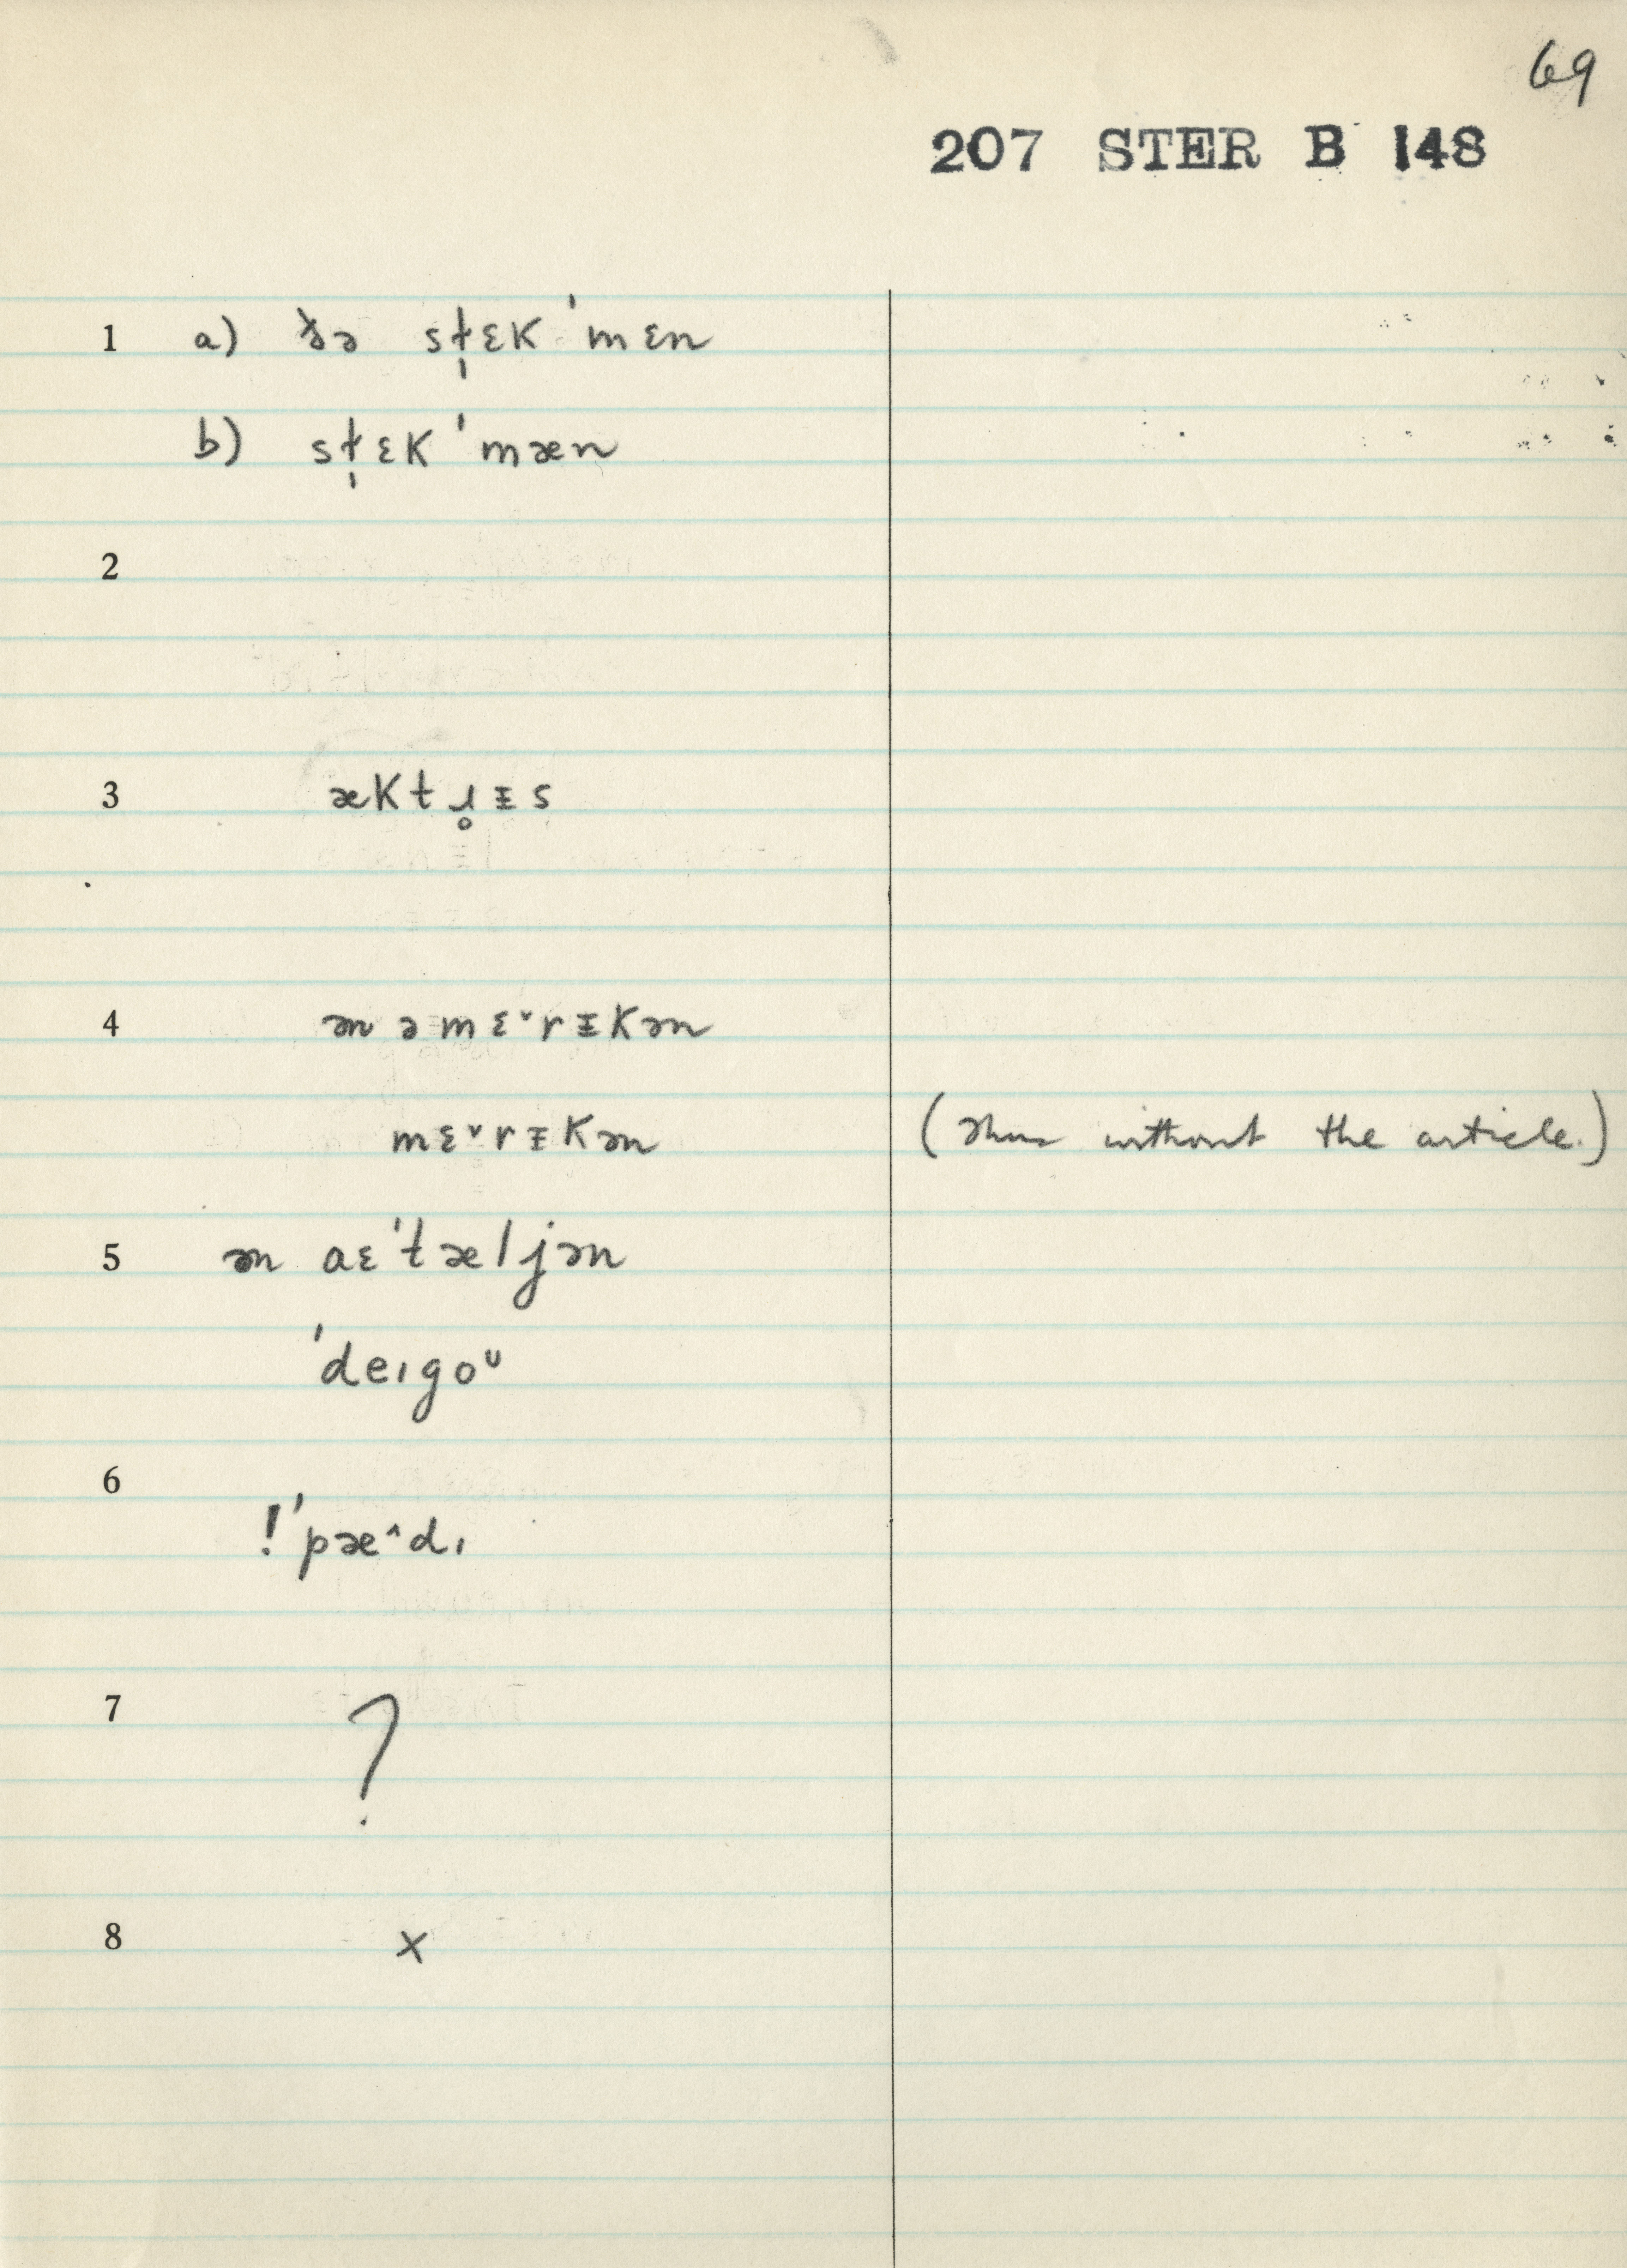 69
207 STER B 148
1 a) ðə st̩ɛk ˈmɛn
b) st̩ɛk ˈmæn
2
3 æktɹ̥ᵻs
4 ən əmɛ˅rᵻkən
mɛ˅rᵻkən ( without the article.)
5 ən aɛˈtæljən
ˈdeɪgoᶸ
6
!ˈpæ^dɪ
7 ?
8 x